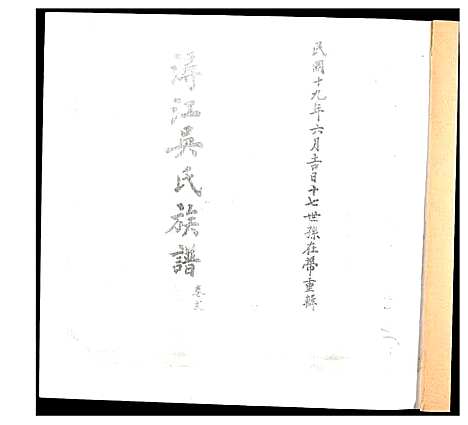 民國十九年六月吉日十七世孫在帶重辑
潯江吳氏族譜
卷弍